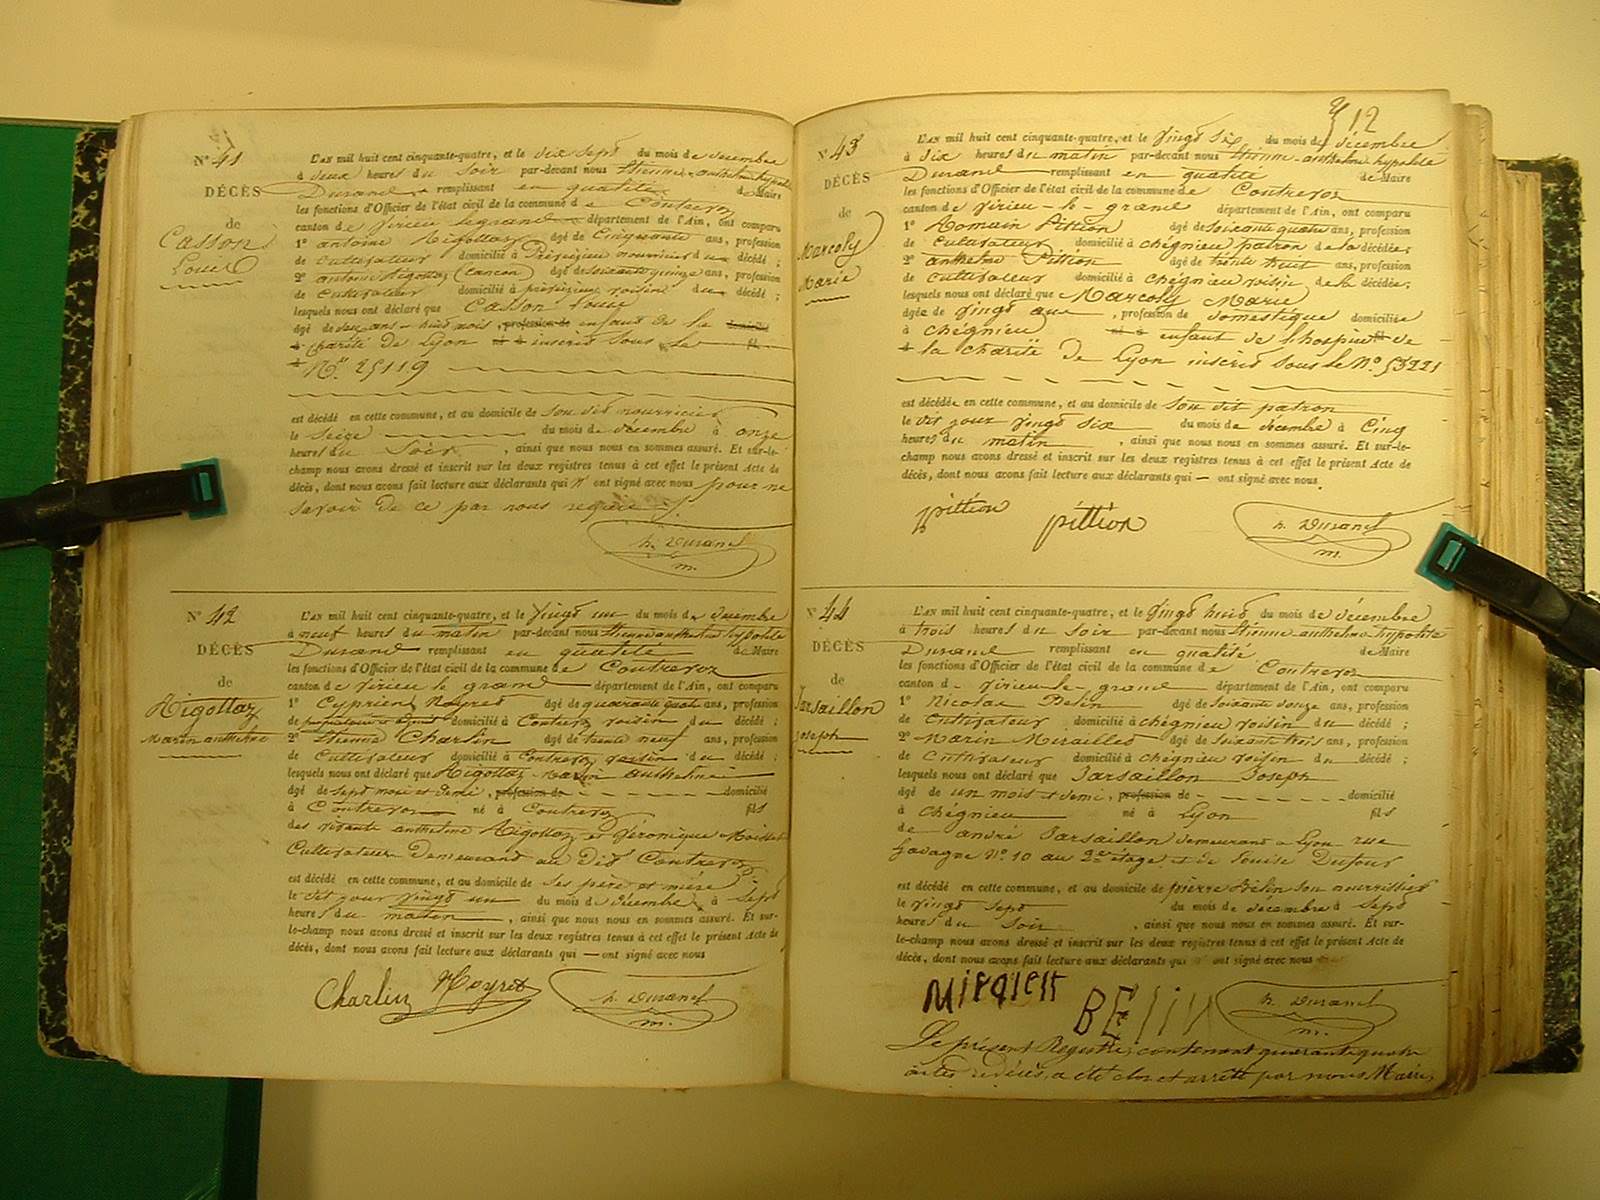 N° 41
DÉCÈS
de
Casson
Louis
L'AN mil huit cent cinquante-quatre, et le dix sept du mois de décembre
à deux heures du soir par-devant nous Étienne-anthelme hypolite
Durand remplissant en qualité de Maire
les fonctions d'Officier de l'état civil de la commune de Contrevoz
canton de virieu le grand département de l'Ain, ont comparu
1° antoine Rigottaz âgé de Cinquante ans, profession
de Cultivateur domicilié à Préveyzieu nourricier du décédé ;
2° antoine Rigottaz (cancon) âgé de soixante quinze ans, profession
de Cultivateur domicilié à preveyzieu voisin du décédé ;
lesquels nous ont déclaré que Casson Louis
âgé de deux ans - huit mois, profession de enfant de la domicilié
à charité de Lyon né à inscrit sous le fil
N° 25119
est décédé en cette commune, et au domicile de son dit nourricier
le seize du mois de décembre à onze
heures du soir, ainsi que nous nous en sommes assuré. Et sur-le-
champ nous avons dressé et inscrit sur les deux registres tenus à cet effet le présent Acte de
décès, dont nous avons fait lecture aux déclarants qui n' ont signé avec nous pour ne
savoir de ce par nous requis
h. Durand
m.
N° 42
DÉCÈS
de
Rigottaz
Marin anthelme
L'AN mil huit cent cinquante-quatre, et le vingt un du mois de décembre
à neuf heures du matin par-devant nous Étienne anthelme hypolite
Durand remplissant en qualité de Maire
les fonctions d'Officier de l'état civil de la commune de Contrevoz
canton de virieu le grand département de l'Ain, ont comparu
1° Cyprien Moyret âgé de quarante quatre ans, profession
de domicilié à Contrevoz voisin du décédé ;
2° Étienne Charlin âgé de trente neuf ans, profession
de Cultivateur domicilié à Contrevoz voisin du décédé ;
lesquels nous ont déclaré que Rigottaz Marin anthelme
âgé de sept mois et demi, profession de domicilié
à Contrevoz né à Contrevoz fils
des vivants anthelme Rigottaz et Véronique
Cultivateurs demeurant au dit Contrevoz
est décédé en cette commune, et au domicile de ses père et mère
le dit jour vingt un du mois de décembre à sept
heures du matin, ainsi que nous nous en sommes assuré. Et sur-
le-champ nous avons dressé et inscrit sur les deux registres tenus à cet effet le présent Acte de
décès, dont nous avons fait lecture aux déclarants qui — ont signé avec nous
Charlin Moyret h. Durand
m.
12
N° 43
DÉCÈS
de
Marcoly
Marie
L'AN mil huit cent cinquante-quatre, et le vingt six du mois de décembre
à dix heures du matin par-devant nous Étienne-anthelme hypolite
Durand remplissant en qualité de Maire
les fonctions d'Officier de l'état civil de la commune de Contrevoz
canton de virieu-le-grand département de l'Ain, ont comparu
1° Romain Pittion âgé de soixante quatre ans, profession
de Cultivateur domicilié à chégnieu patron de la décédée ;
2° anthelme Pittion âgé de trente huit ans, profession
de Cultivateur domicilié à chégnieu voisin de la décédée ;
lesquels nous ont déclaré que Marcoly Marie
âgée de vingt ans, profession de domestique domiciliée
à chégnieu né à enfant de l'hospice fil de
à la charité de Lyon inscrit sous le N° 53221
est décédée en cette commune, et au domicile de son dit patron
le dit jour vingt six du mois de décembre à cinq
heures du matin, ainsi que nous nous en sommes assuré. Et sur-le-
champ nous avons dressé et inscrit sur les deux registres tenus à cet effet le présent Acte de
décès, dont nous avons fait lecture aux déclarants qui — ont signé avec nous.
pittion pittion h. Durand
m.
N° 44
DÉCÈS
de
Jarsaillon
Joseph
L'AN mil huit cent cinquante-quatre, et le vingt huit du mois de décembre
à trois heures du soir par-devant nous Étienne-anthelme-hypolite
Durand remplissant en qualité de Maire
les fonctions d'Officier de l'état civil de la commune de Contrevoz
canton de virieu-le-grand département de l'Ain, ont comparu
1° Nicolas Belin âgé de soixante douze ans, profession
de Cultivateur domicilié à chégnieu voisin du décédé ;
2° Marin âgé de soixante trois ans, profession
de Cultivateur domicilié à chégnieu voisin du décédé ;
lesquels nous ont déclaré que Jarsaillon Joseph
âgé de un mois et demi, profession de domicilié
à chégnieu né à Lyon fils
de andré Jarsaillon demeurant à Lyon rue
N° 10 au 2e étage, et de Louise Dufour
est décédé en cette commune, et au domicile de pierre Belin son nourrissier
le vingt sept du mois de décembre à sept
heures du soir, ainsi que nous nous en sommes assuré. Et sur-
le-champ nous avons dressé et inscrit sur les deux registres tenus à cet effet le présent Acte de
décès, dont nous avons fait lecture aux déclarants qui ont signé avec nous
BEliN h. Durand
m.
Le présent Registre, contenant quarante quatre
actes de décès, a été clos et arrêté par nous Maire